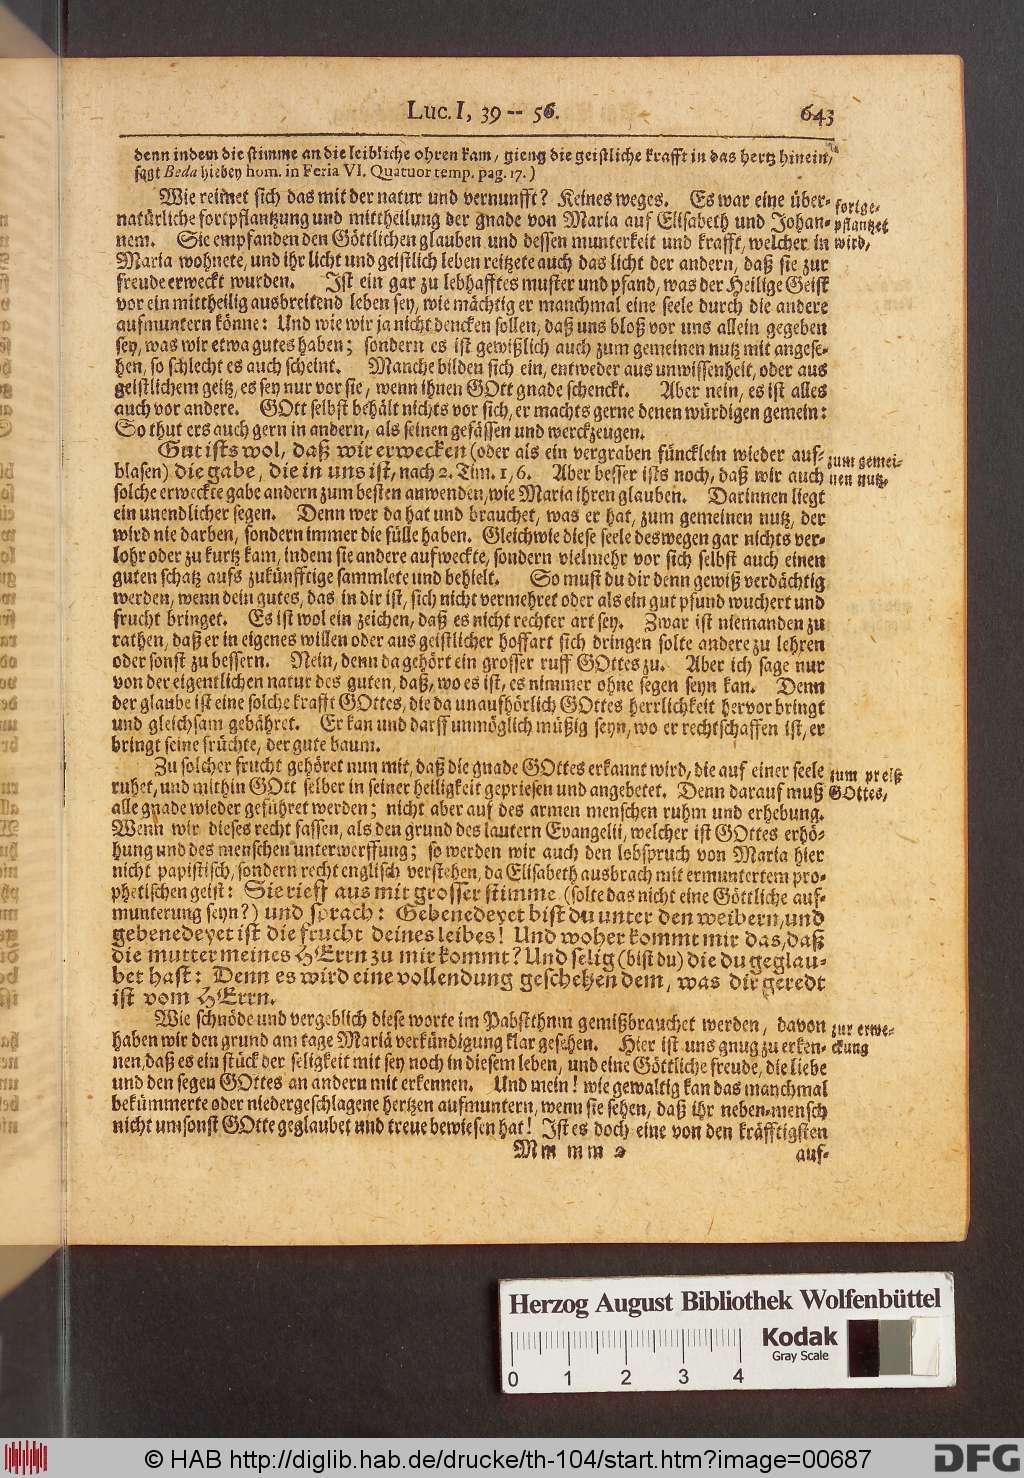 Luc. I, 39 -- 56. 643
denn indem die stimme an die leibliche ohren kam, gieng die geistliche krafft in das hertz hinein,
sagt Beda hiebey hom. in Feria VI. Quatuor temp. pag. 17. )
Wie reimet sich das mit der natur und vernunfft? Keines weges. Es war eine über-
natürliche fortpflantzung und mittheilung der gnade von Maria auf Elisabeth und Johan-
nem. Sie empfanden den Göttlichen glauben und dessen munterkeit und krafft, welcher in
Maria wohnete, und ihr licht und geistlich leben reitzete auch das licht der andern, daß sie zur
freude erweckt wurden. Ist ein gar zu lebhafftes muster und pfand, was der Heilige Geist
vor ein mittheilig ausbreitend leben sey, wie mächtig er manchmal eine seele durch die andere
aufmuntern könne: Und wie wir ja nicht dencken sollen, daß uns bloß vor uns allein gegeben
sey, was wir etwa gutes haben; sondern es ist gewißlich auch zum gemeinen nutz mit angese-
hen, so schlecht es auch scheint. Manche bilden sich ein, entweder aus unwissenheit, oder aus
geistlichem geitz, es sey nur vor sie, wenn ihnen GOtt gnade schenckt. Aber nein, es ist alles
auch vor andere. GOtt selbst behält nichts vor sich, er machts gerne denen würdigen gemein:
So thut ers auch gern in andern, als seinen gefässen und werckzeugen.
fortge-
pflantzet
wird,
Gut ists wol, daß wir erwecken (oder als ein vergraben füncklein wieder auf-
blasen) die gabe, die in uns ist, nach 2. Tim. 1, 6. Aber besser ists noch, daß wir auch
solche erweckte gabe andern zum besten anwenden, wie Maria ihren glauben. Darinnen liegt
ein unendlicher segen. Denn wer da hat und brauchet, was er hat, zum gemeinen nutz, der
wird nie darben, sondern immer die fülle haben. Gleichwie diese seele deswegen gar nichts ver-
lohr oder zu kurtz kam, indem sie andere aufweckte, sondern vielmehr vor sich selbst auch einen
guten schatz aufs zukünfftige sammlete und behielt. So must du dir denn gewiß verdächtig
werden, wenn dein gutes, das in dir ist, sich nicht vermehret oder als ein gut pfund wuchert und
frucht bringet. Es ist wol ein zeichen, daß es nicht rechter art sey. Zwar ist niemanden zu
rathen, daß er in eigenes willen oder aus geistlicher hoffart sich dringen solte andere zu lehren
oder sonst zu bessern. Nein, denn da gehört ein grosser ruff GOttes zu. Aber ich sage nur
von der eigentlichen natur des guten, daß, wo es ist, es nimmer ohne segen seyn kan. Denn
der glaube ist eine solche krafft GOttes, die da unaufhörlich GOttes herrlichkeit hervor bringt
und gleichsam gebähret. Er kan und darff unmöglich müßig seyn, wo er rechtschaffen ist, er
bringt seine früchte, der gute baum.
zum gemei-
nen nutz,
Zu solcher frucht gehöret nun mit, daß die gnade GOttes erkannt wird, die auf einer seele
ruhet, und mithin GOtt selber in seiner heiligkeit gepriesen und angebetet. Denn darauf muß
alle gnade wieder geführet werden; nicht aber auf des armen menschen ruhm und erhebung.
Wenn wir dieses recht fassen, als den grund des lautern Evangelii, welcher ist GOttes erhö-
hung und des menschen unterwerffung; so werden wir auch den lobspruch von Maria hier
nicht papistisch, sondern recht englisch verstehen, da Elisabeth ausbrach mit ermuntertem pro-
phetischen geist: Sie rieff aus mit grosser stimme (solte das nicht eine Göttliche auf-
munterung seyn?) und sprach: Gebenedeyet bist du unter den weibern, und
gebenedeyet ist die frucht deines leibes! Und woher kommt mir das, daß
die mutter meines HErrn zu mir kommt? Und selig (bist du) die du geglau-
bet hast: Denn es wird eine vollendung geschehen dem, was dir geredt
ist vom HErrn.
zum preiß
GOttes,
Wie schnöde und vergeblich diese worte im Pabstthum gemißbrauchet werden, davon
haben wir den grund am tage Mariä verkündigung klar gesehen. Hier ist uns gnug zu erken-
nen, daß es ein stück der seligkeit mit sey noch in diesem leben, und eine Göttliche freude, die liebe
und den segen GOttes an andern mit erkennen. Und mein! wie gewaltig kan das manchmal
bekümmerte oder niedergeschlagene hertzen aufmuntern, wenn sie sehen, daß ihr neben-mensch
nicht umsonst GOtte geglaubet und treue bewiesen hat! Ist es doch eine von den kräfftigsten
zur erwe-
ckung
Mm mm 2 auf-
Herzog August Bibliothek Wolfenbüttel
Kodak
Gray Scale
0 1 2 3 4
© HAB http://diglib.hab.de/drucke/th-104/start.htm?image=00687
DFG